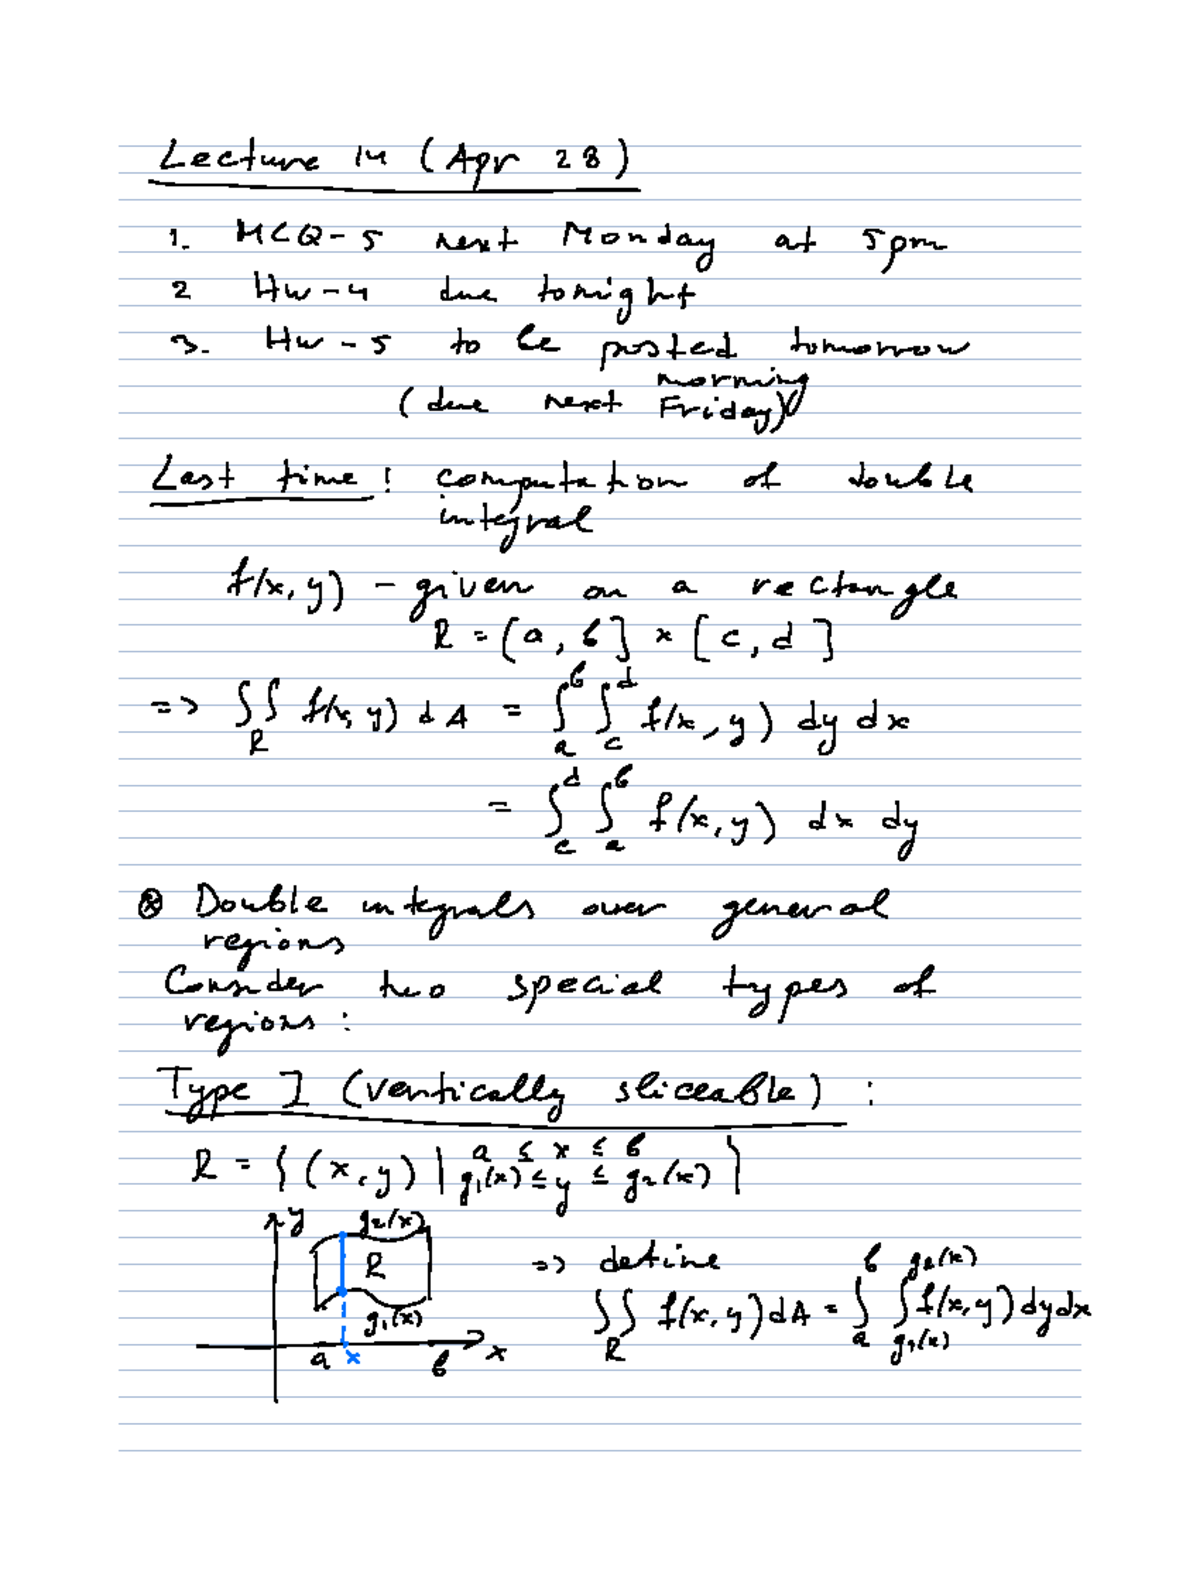 Lecture 14 (Apr 28)
1. MCQ-5 next Monday at 5pm
2 HW-4 due tonight
3. HW-5 to be posted tomorrow
morning
(due next Friday)
Last time: computation of double
integral
f(x,y) - given on a rectangle
R = [a, b] × [c, d]
=> ∫∫_R f(x,y) dA = ∫_a^b ∫_c^d f(x,y) dy dx
= ∫_c^d ∫_a^b f(x,y) dx dy
⊗ Double integrals over general
regions
Consider two special types of
regions:
Type I (vertically sliceable):
R = { (x,y) | a ≤ x ≤ b
g₁(x) ≤ y ≤ g₂(x) }
y
g₂(x)
R
g₁(x)
a x b x
=> define
∫∫_R f(x,y)dA = ∫_a^b ∫_{g₁(x)}^{g₂(x)} f(x,y)dydx